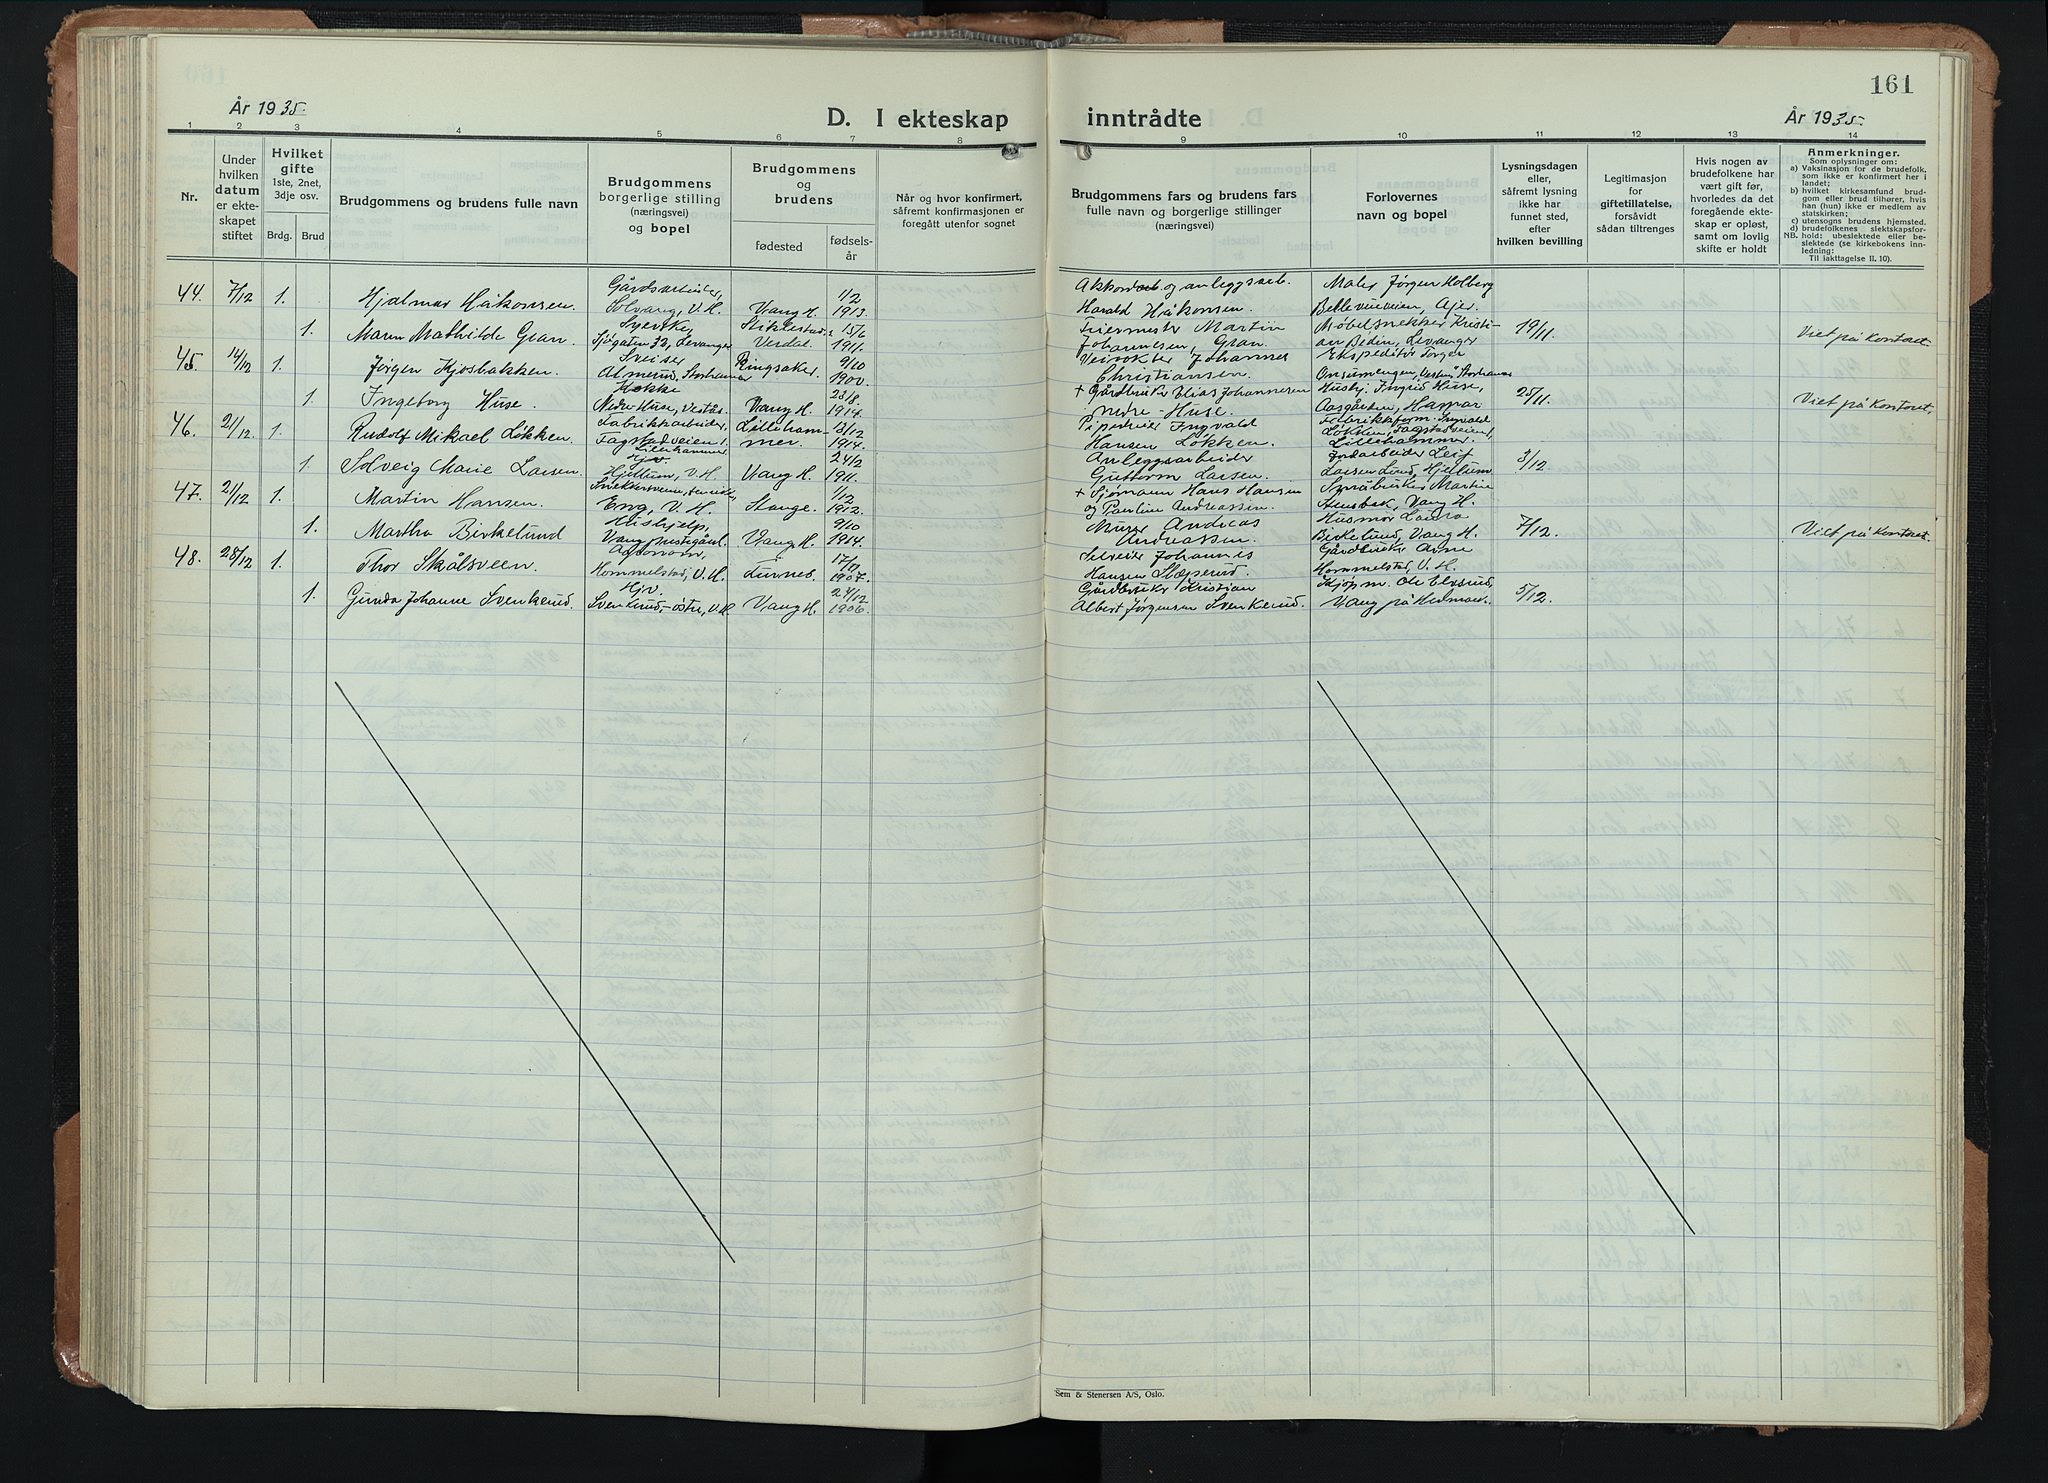 161
År 1935
D. I ekteskap inntrådte
År 1935
1 2 3 4 5 6 7 8 9 10 11 12 13 14
Nr.
Under
hvilken
datum
er ekte-
skapet
stiftet
Hvilket
gifte
1ste, 2net,
3dje osv.
Brdg. Brud
Brudgommens og brudens fulle navn
Brudgommens
borgerlige stilling
(næringsvei)
og bopel
Brudgommens
og
brudens
fødested
fødsels-
år
Når og hvor konfirmert,
såfremt konfirmasjonen er
foregått utenfor sognet
Brudgommens fars og brudens fars
fulle navn og borgerlige stillinger
(næringsvei)
Forlovernes
navn og bopel
Lysningsdagen
eller,
såfremt lysning
ikke har
funnet sted,
efter
hvilken bevilling
Legitimasjon
for
giftetillatelse,
forsåvidt
sådan tiltrenges
Hvis nogen av
brudefolkene har
vært gift før,
hvorledes da det
foregående ekte-
skap er opløst,
samt om lovlig
skifte er holdt
Anmerkninger.
Som oplysninger om:
a) Vaksinasjon for de brudefolk,
som ikke er konfirmert her i
landet;
b) hvilket kirkesamfund brud-
gom eller brud tilhører, hvis
han (hun) ikke er medlem av
statskirken;
c) utensogns brudens hjemsted.
d) brudefolkenes slektskapsfor-
NB. hold: ubeslektede eller be-
slektede (se kirkebokens inn-
ledning:
Til iakttagelse II. 10).
44. 7/12 1. Hjalmar Håkonsen. Gårdsarbeider, Solvang, V. H. Vang H. 1/2 1913. Akkordarb. og anleggsarb. Harald Håkonsen. Maler Jørgen Holberg Bellevueveien, Ajer.
1. Maren Mathilde Gran. Syerske, Sjøgaten 32, Levanger Stiklestad, Verdal. 15/6 1911. Martin Johannesen, Gran. Møbelsnekker Kristian Bedin, Levanger 19/11. Viet på kontoret.
45. 14/12 1. Jørgen Kjosbakken. Sveiser Almerud, Storhamar Ringsaker. 9/10 1900. Veivokter Johannes Christiansen. Ekspeditør Torger
1. Ingeborg Huse. Kokke Nedre Huse, Vestås. Vang H. 23/8. 1914. + Gårdbruker Elias Johannesen nedre-Huse. Husbj. Ingrid Huse, Aasgården, Hamar 25/11. Viet på kontoret.
46. 21/12. 1. Rudolf Mikael Løkken. Fabrikkarbeider, Fagstadveien 1, Lillehammer Lillehammer. 13/12 1914. Piperdreier Ingvald Hansen Løkken. Fabrikkform. Ingvald Løkken, Fagstadveien 1, Lillehammer.
1. Solveig Marie Larsen. Hjv. Hjellum, V. H. Vang H. 24/2 1911. Anleggsarbeider Guttorm Larsen. Jordarbeider Leif Larsen Lund, Hjellum 3/12
47. 21/12 1. Martin Hansen. Snekkersvenn, Eng, V. H. Stange. 1/12 1912. + Sjømann Hans Hansen og Pauline Andreassen. Småbruker Martin Stensbak, Vang H.
1. Martha Birkelund Hushjelp, Vang prestegård. Vang H. 9/10 1914. Murer Andreas Andreassen. Husmor Laura Birkelund, Vang H. 7/12. Viet på kontoret.
48. 28/12 1. Thor Skålsveen. Agronom, Hommelstad, V. H. Furnes. 17/11 1907. Johannes Hansen Slæperud. Gårdbruker Arne Hommelstad, V. H.
1. Gunda Johanne Svenkerud. Hjv. Svenkerud, østre, V. H. Vang H. 24/12 1906. Gårdbruker Kristian Albert Jørgensen Svenkerud. Kjøpm. Ole Elvsrud, Vang på Hedmark. 5/12.
Sem & Stenersen A/S, Oslo.